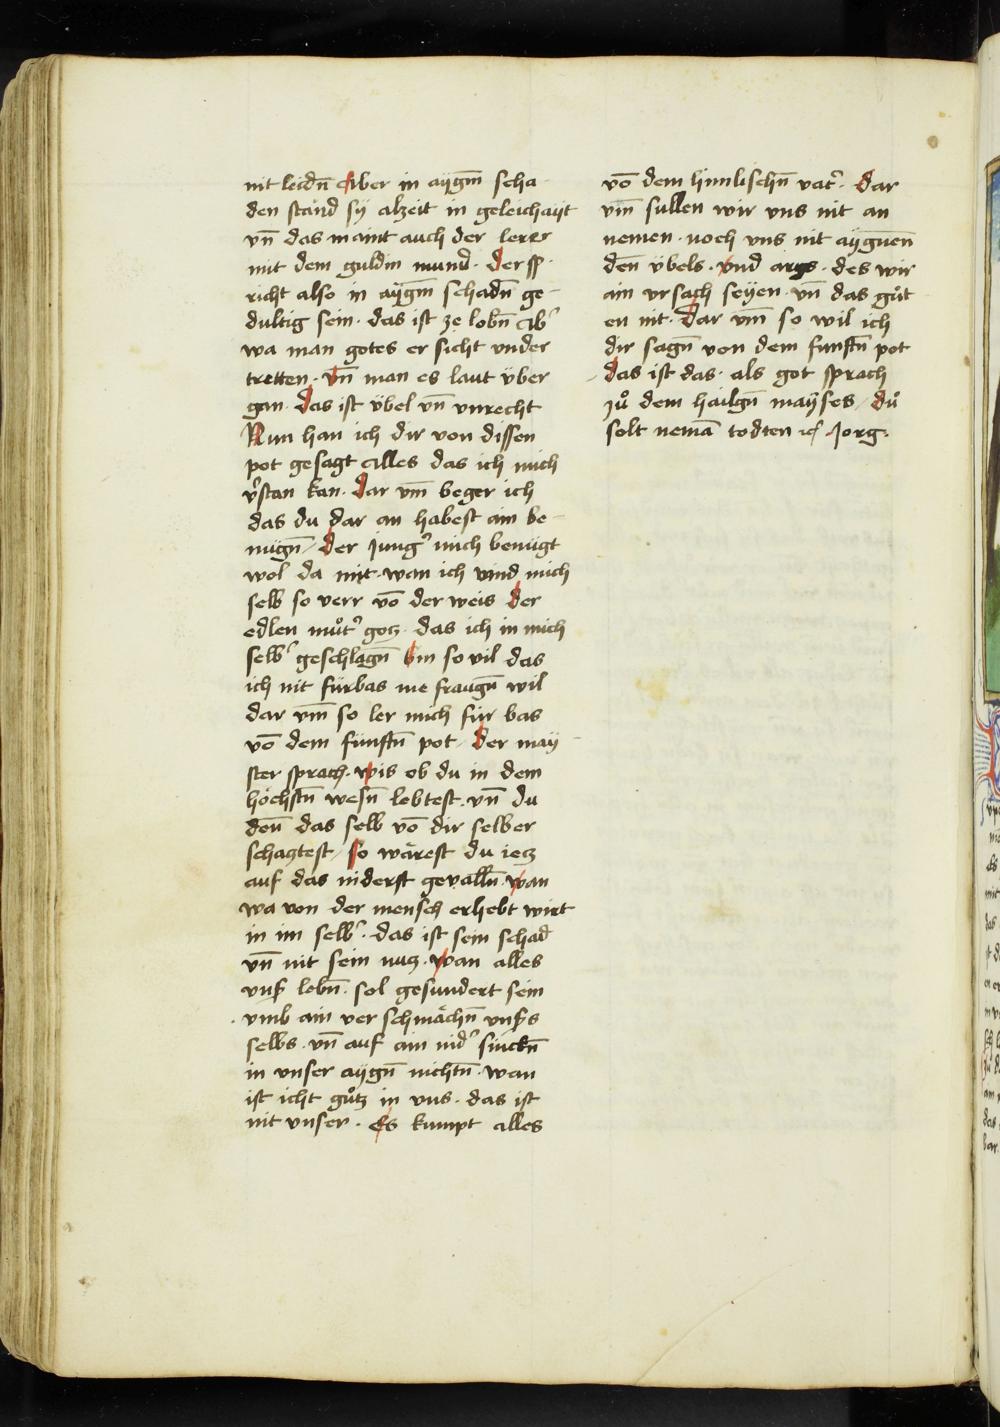 nit leidn̄ Aber in aÿgm̄ scha
den stånd sÿ alzeit in geleichaÿt
vn̄ das maint auch der lerer
mit dem guldin mund · der sp
richt also in aÿgm̄ schadn̄ ge-
dultig sein · das ist ze lobn̄ Ab᾽
wa man gotes er sicht vnder
tretten · vn̄ man es laut über
gan · das ist übel vn̄ vnrecht
Nun han ich dir von dissen
pot gesagt alles das ich mich
v᾽stan kan · dar vm̄ beger ich
das du dar an habest ain be-
nügn̄ / der Jung᾽ mich benügt
wol da mit · wan ich vind mich
selb so verr vō der weis der
edlen můt᾽ gotz · das ich in mich
selb᾽ geschlagn̄ bin so vil das
ich nit fürbas me fraugn̄ wil
dar vm̄ so ler mich für bas
vō dem fünftn̄ pot / der maÿ
ster sprach · wis ob du in dem
höchstn̄ wesn̄ lebtest · vn̄ du
den̄ das selb vō dir selber
schagtest / so wärest du ietz
auf das niderst gevalln̄ · wan
wa von der mensch erhebt wirt
in im selb᾽ · das ist sein schad
vn̄ nit sein nutz · wan alles
vnß lebn̄ · sol gesundert sein
vmb ain ver schmächn̄ vnßs
selbs · vn̄ auf ain nid᾽ sinckn̄
in vnser aÿgn̄ nichtn̄ · wan
ist icht gůtz in vns · das ist
nit vnser · Es kumpt alles
vō dem himlischn̄ vat᾽ · dar
vm̄ sullen wir vns nit an
nemen · noch vns nit aÿgnen̄
den̄ übels · vnd args · des wir
ain vrsach seyen · vn̄ das gůt
en nit · Dar vm̄ so wil ich
dir sagn̄ von dem funftn̄ pot
das ist das · als got sprach
zů dem hailgn̄ maÿses / dů
solt nemā todten Jorg ·